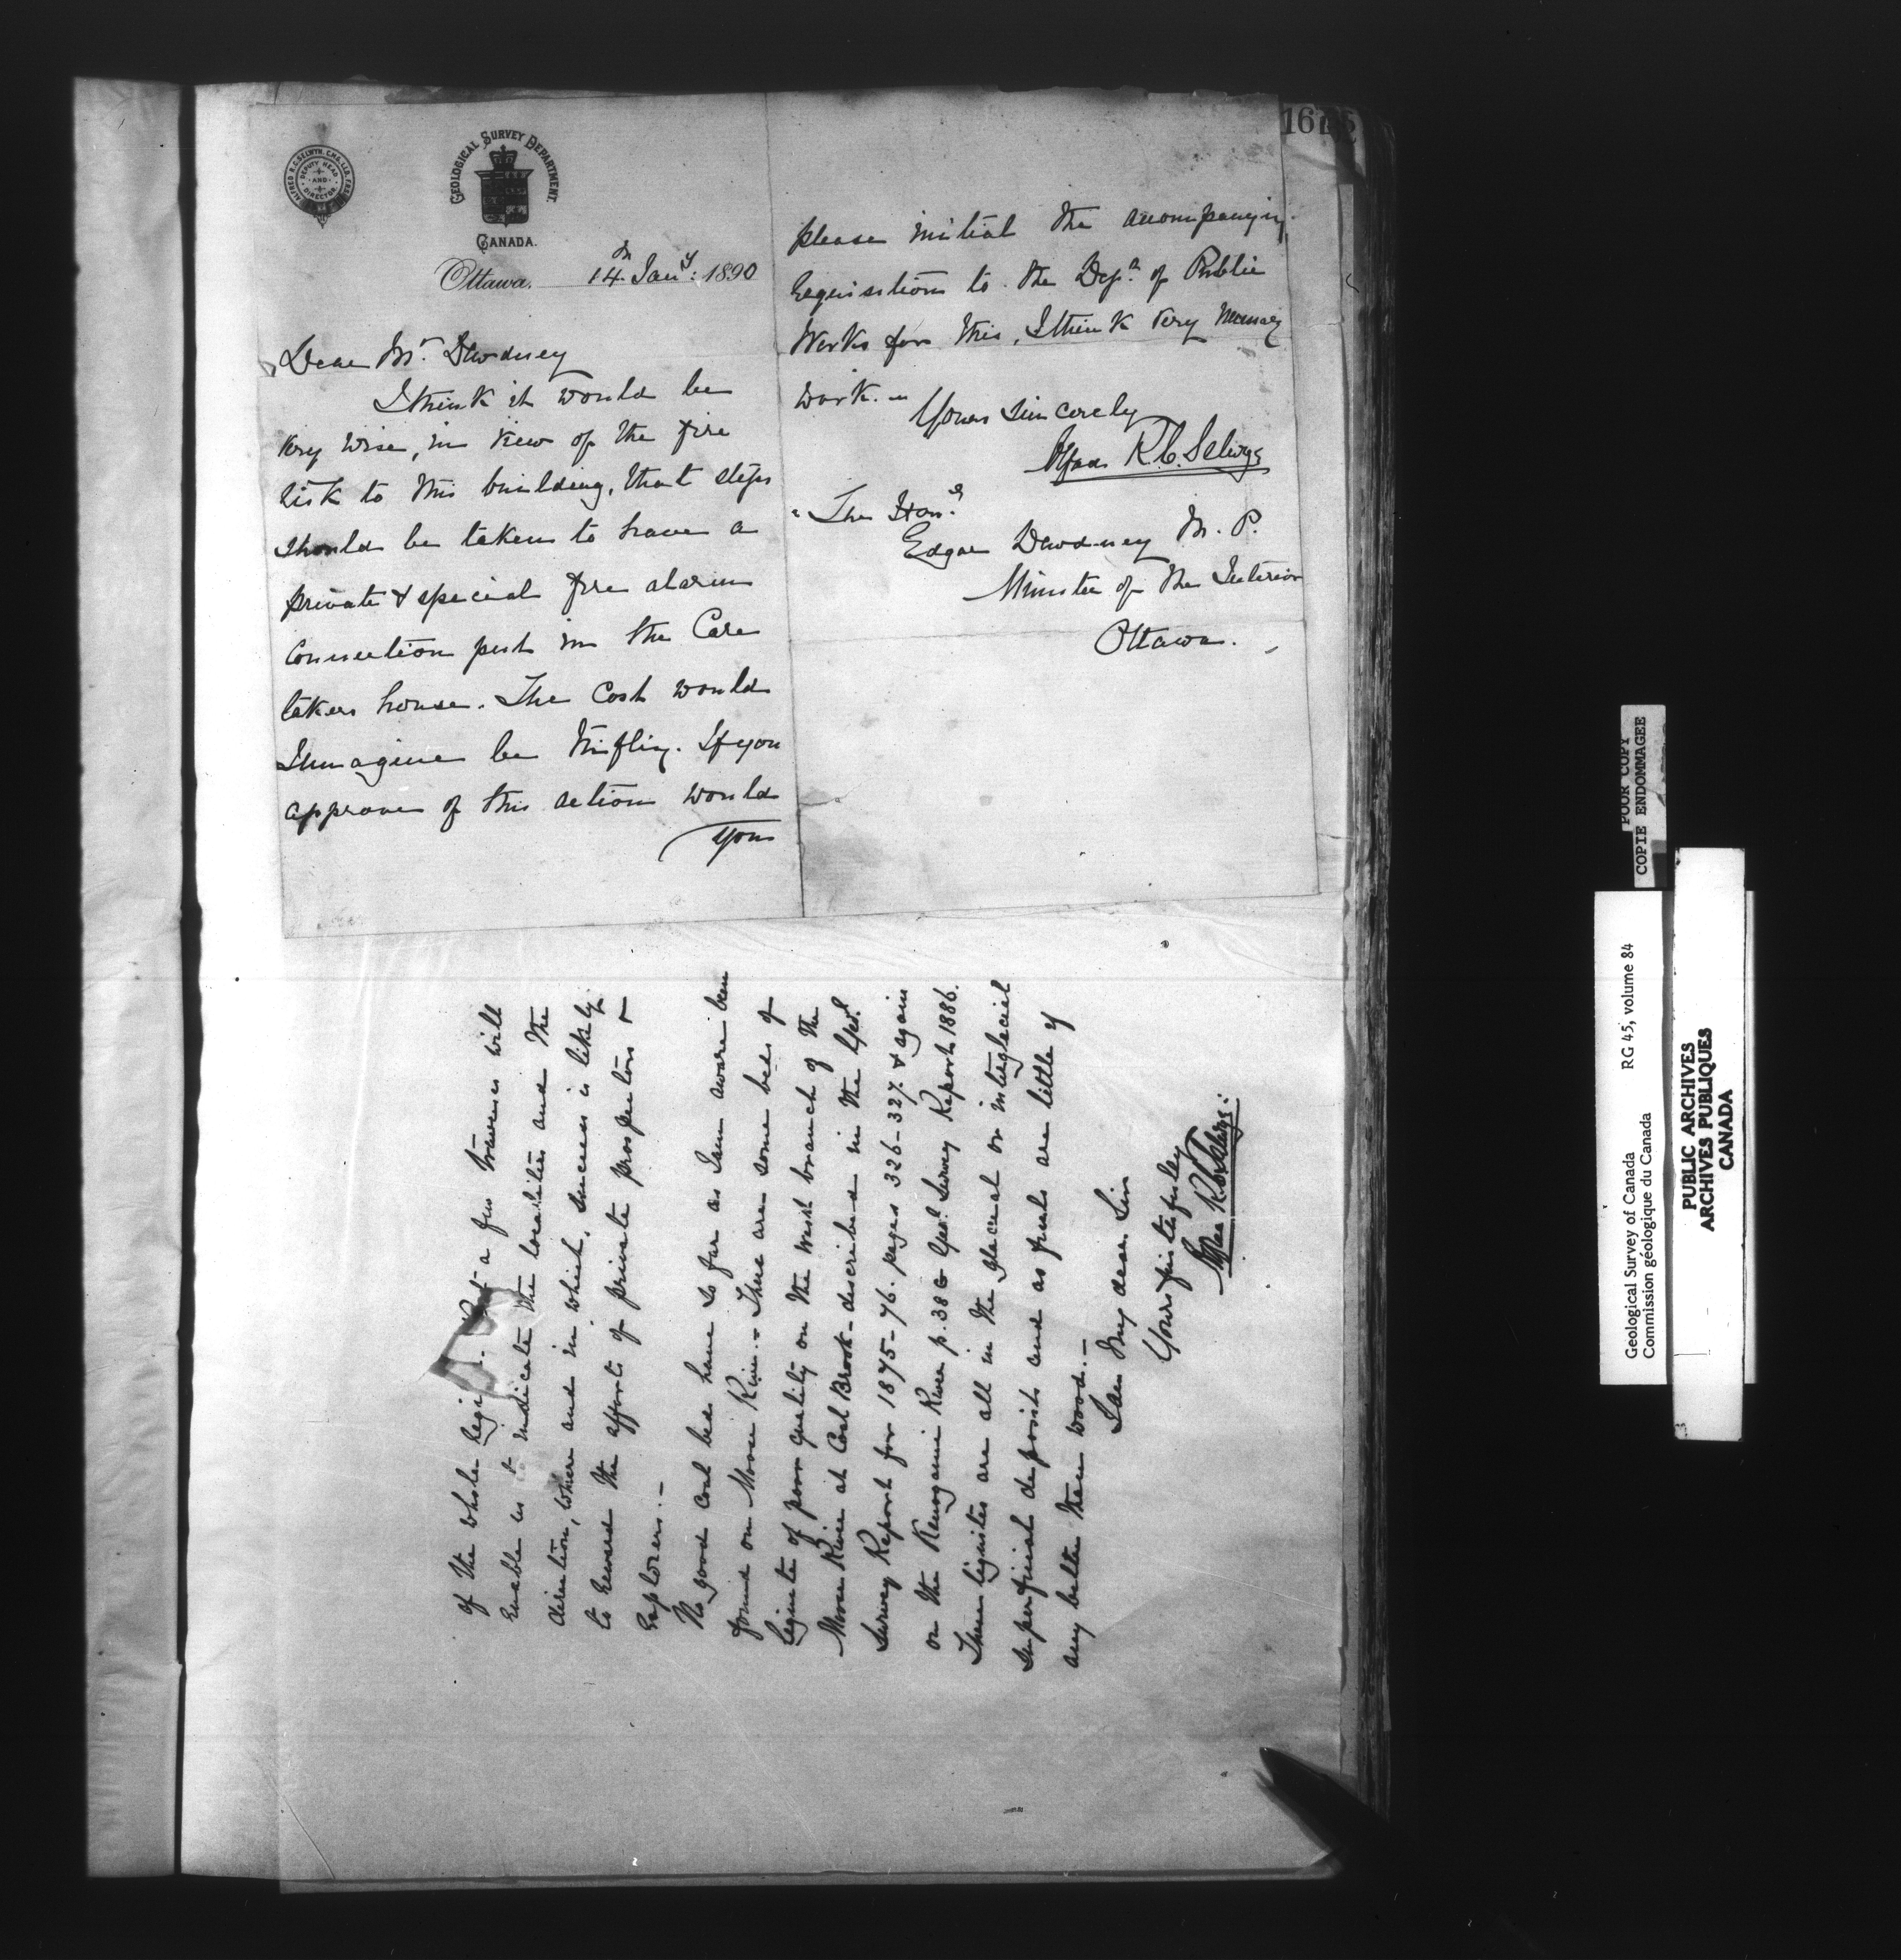 ALFRED R.C. SELWYN. C.M.G. LL.D. F.R.S.
DEPUTY HEAD
AND
DIRECTOR
GEOLOGICAL SURVEY DEPARTMENT.
CANADA.
Ottawa, 14th Jany: 1890
Dear Mr. Dewdney
I think it would be
very wise, in view of the fire
risk to this building, that steps
should be taken to have a
private & special fire alarm
connection put in the Care
takers house. The cost would
I imagine be trifling. If you
approve of this action would
you
please initial the accompanying
requisition to the Dept. of Public
Works for this, I think very necessary
work.
Yours sincerely
Alfred R. C. Selwyn
The Honle.
Edgar Dewdney M. P.
Minister of the Interior
Ottawa.
16
of the whole a few traverses will
enable us to indicate the localities and the
direction, where and in which, success is likely
to reward the efforts of private prospectors &
explorers. —
No good coal beds have so far as I am aware been
found on Moose River. There are some beds of
lignite of poor quality on the West branch of the
Moose River at Coal Brook - described in the Geol.
Survey Report for 1875-76. pages 326-327. & again
on the Kenogami River p. 38 G Geol. Survey Report 1886.
These lignites are all in the glacial or interglacial
superficial deposits and as fuels are little if
any better than wood. —
I am my dear Sir
Yours faithfully
Alfred R. C. Selwyn:
POOR COPY
COPIE ENDOMMAGEE
Geological Survey of Canada RG 45, volume 84
Commission géologique du Canada
PUBLIC ARCHIVES
ARCHIVES PUBLIQUES
CANADA